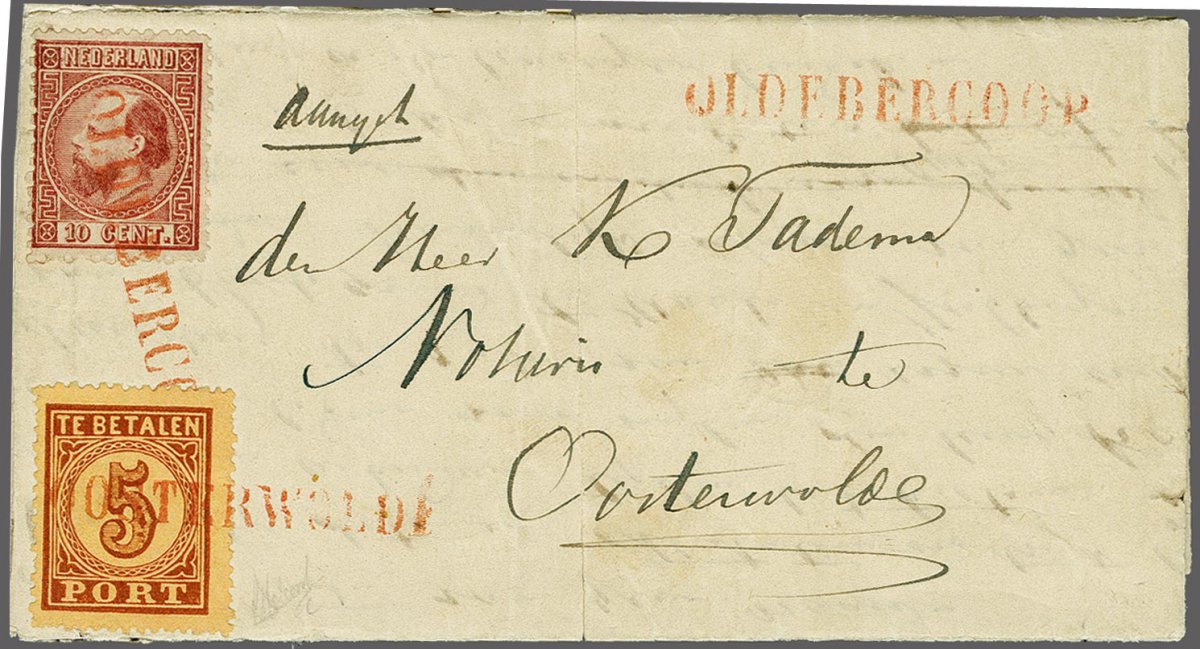 NEDERLAND
10 CENT.
OLDEBERCOOP
Aangeh
den Heer K Tadema
Notaris te
Oosterwolde
BERCO
TE BETALEN
5
PORT
OOSTERWOLDE